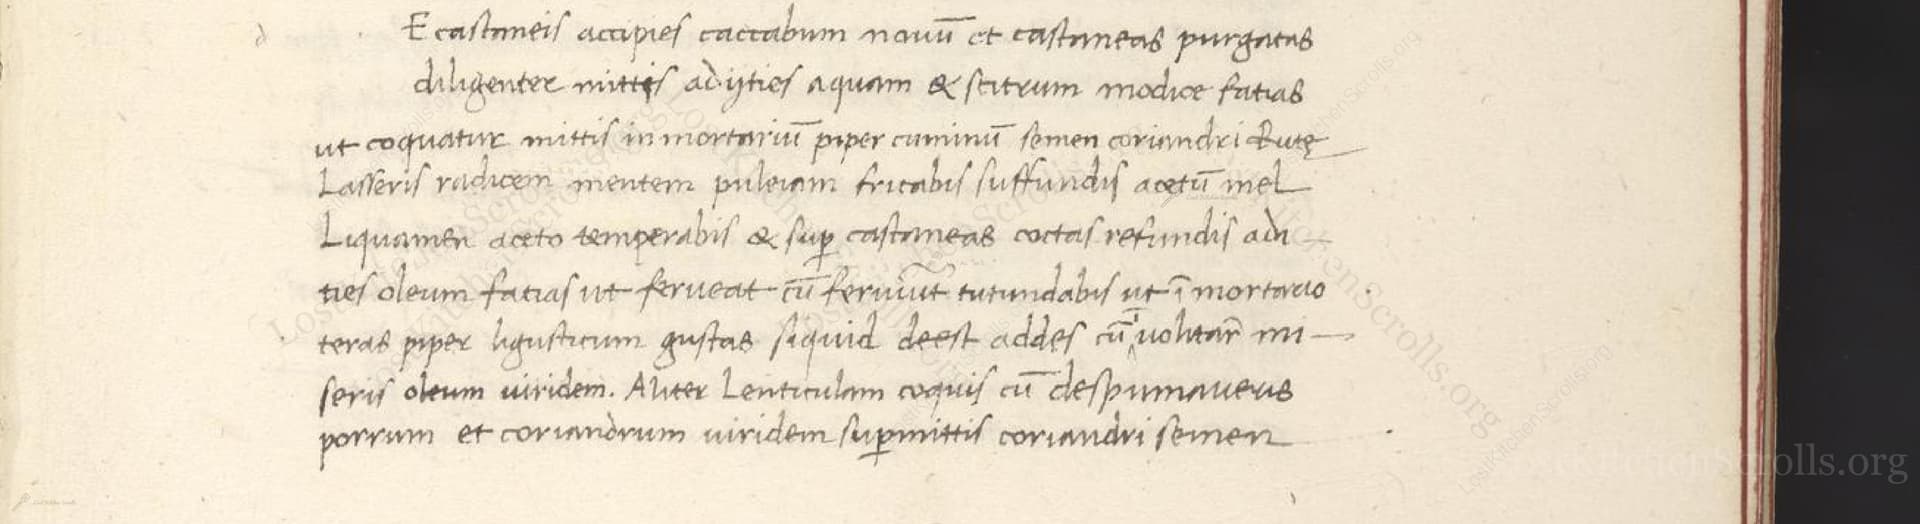 E castaneis accipies caccabum nouū et castaneas purgatas
diligenter mittis adijties aquam & scitrum modice fatias
ut coquatur mittis in mortariū piper cuminū semen coriandri Rutę
Lasseris radicem mentem puleiam fricabis suffundis acetū mel
Liquamen aceto temperabis & suꝑ castaneas coctas refundis adi
ties oleum fatias ut ferueat cū tutundabis ut ī mortario
teras piper ligusticum gustas siquid deest addes cū mi
seris oleum uiridem. Aliter Lenticulam coquis cū despumaueris
porrum et coriandrum uiridem suꝑmittis coriandri semen
LostKitchenScrolls.org